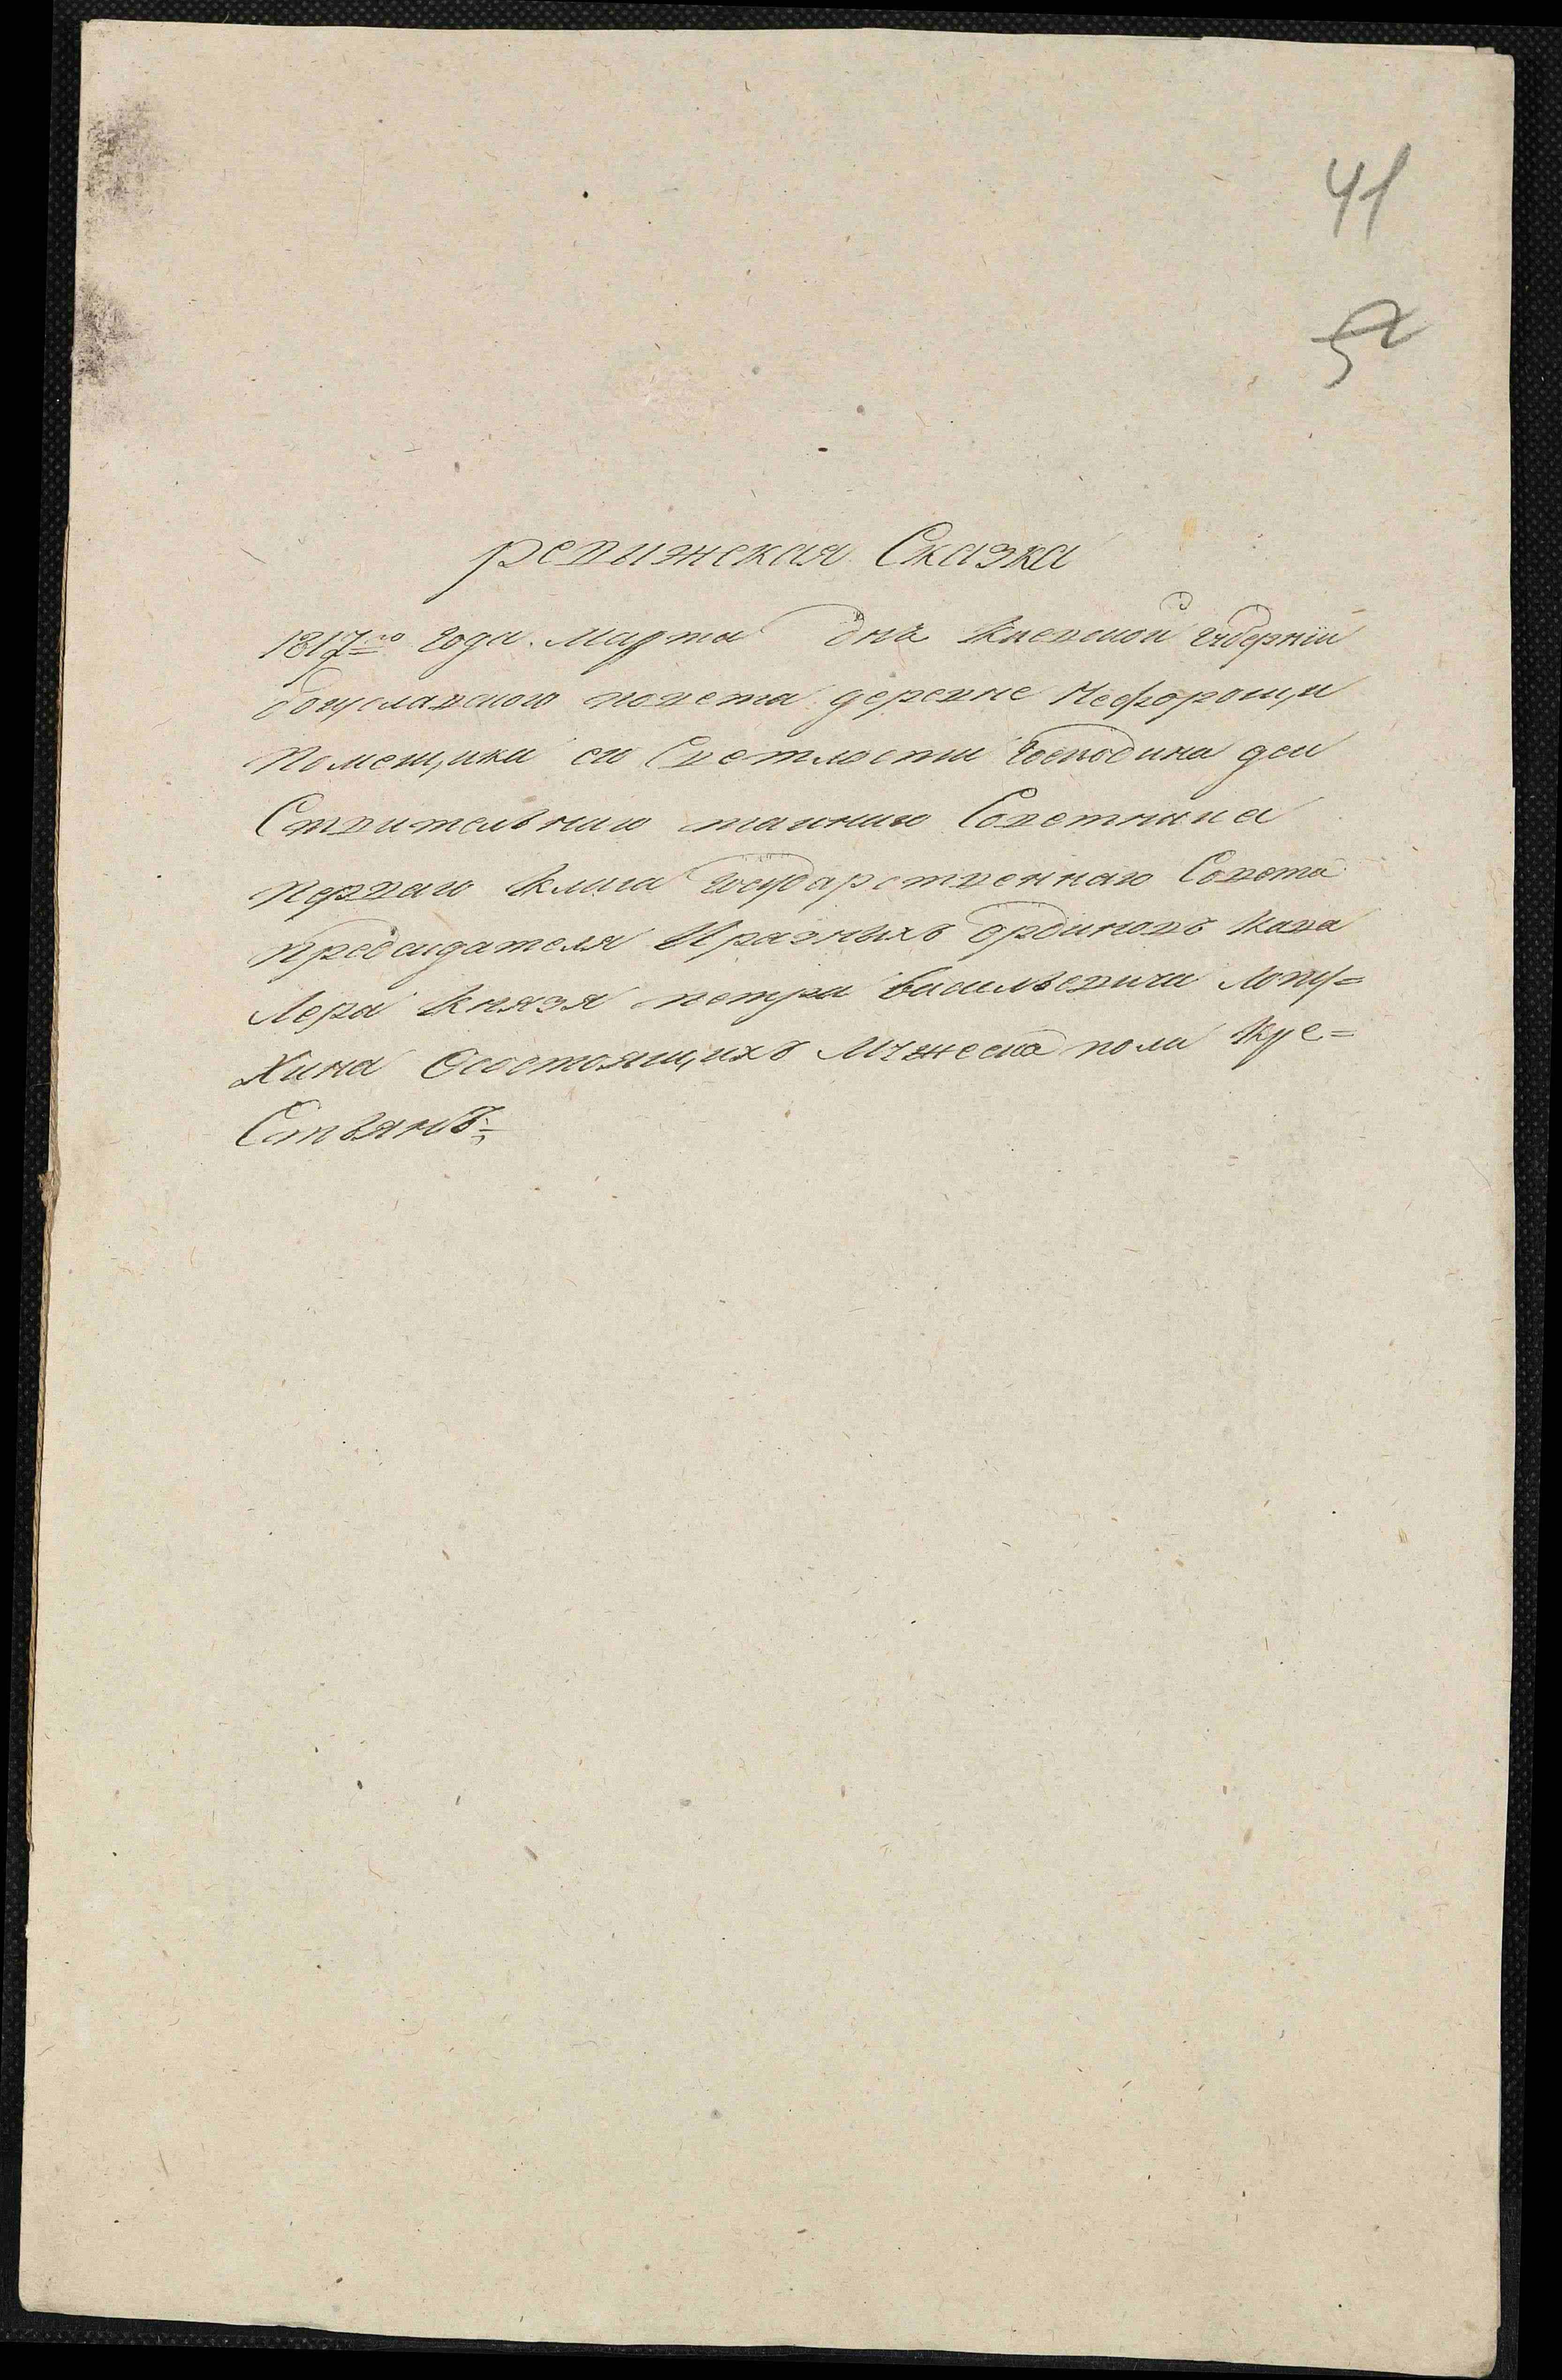 41
ревижская Сказка
1817го года. Марта дня Киевской губернїи
богуславского повета деревне Нефорощи
Помещика его Светлости господина деи
Ствительнаго таинаго Советника
Перваго Класа государственнаго Совета
Председателя Иразныхъ ординовъ Кава
Лера Князя петра василъевича Лопу=
Хина Осостоящихъ Мужеска пола Кре=
Стъянъ